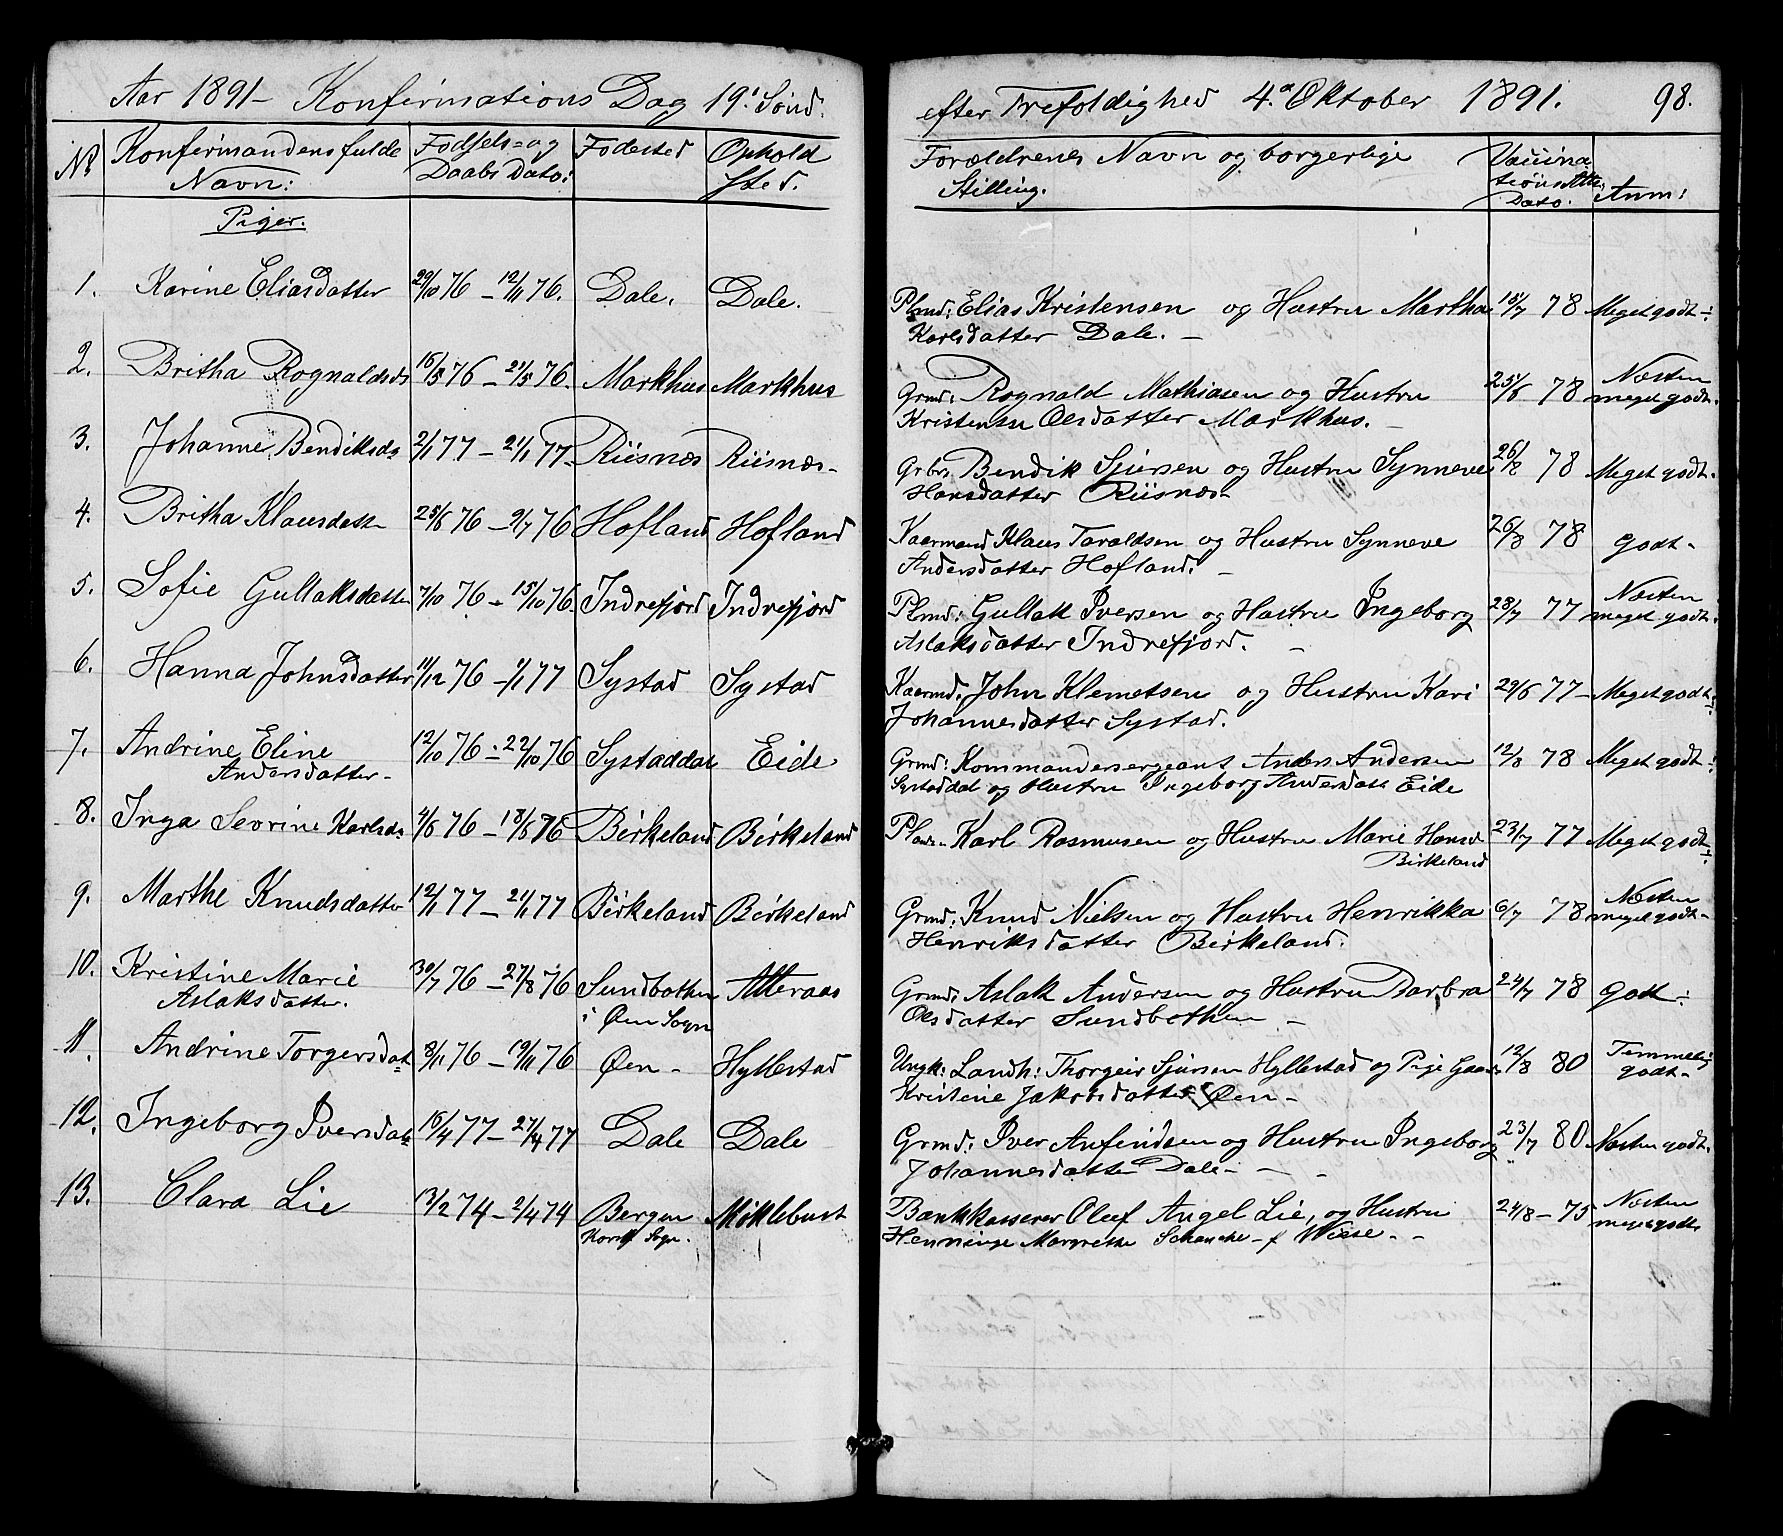 Aar 1891 – Konfirmations Dag 19' Sønd:
No Konfirmandens fulde Fødsels- og Fødested Ophold
Navn: Daabs Dato: sted.
Piger.
1. Karine Eliasdatter 29/10 76 – 12/11 76. Dale. Dale.
2. Britha Rognaldsds 16/5 76 – 21/5 76. Markhus Markhus
3. Johanne Bendiksds 2/1 77 – 21/1 77 Riisnæs Riisnæs –
4. Britha Klausdatt 25/6 76 – 2/7 76 Hofland Hofland
5. Sofie Gullaksdatter 7/10 76 – 15/10 76 Indrefjord Indrefjord
6. Hanna Johnsdatter 11/12 76 – 1/1 77 Systad Systad
7. Andrine Eline 12/10 76 – 22/10 76 Systaddal Eide
Andersdatter –
8. Inga Sevrine Karlsds 4/6 76 – 18/6 76 Birkeland Birkeland
9. Marthe Knudsdatter 12/1 77 – 21/1 77 Birkeland Birkeland
10. Kristine Marie 30/7 76 – 27/8 76 Sundbothen Atteraas
Aslaksdatter. i Øen Sogn
11. Andrine Torgersdat 8/11 76 – 19/11 76 Øen – Hyllestad
12. Ingeborg Iversdatt 16/4 77 – 27/4 77 Dale Dale
13. Clara Lie 13/2 74 – 2/4 74 Bergen Møklebust
Korsk Sogn.
efter Trefoldighed 4.de Oktober 1891. 98.
Forældrenes Navn og borgerlige Vaccina
Stilling. tions Atts: Anm:
Dato.
Plmd: Elias Kristensen og Hustru Martha 15/7 78 Meget godt
Karlsdatter Dale. –
Grmd: Rognald Mathiasen og Hustru 25/8 78 Næsten
Kristense Olsdatter Markhus. – meget godt.
Grbr: Bendik Sjursen og Hustru Synneve 26/8 78 Meget godt.
Hansdatter Riisnæs
Kaarmand Klaus Taraldsen og Hustru Synneve 26/8 78 godt –
Andersdatter Hofland. –
Plmd: Gullak Iversen og Hustru Ingeborg 28/7 77 Næsten
Aslaksdatter Indrefjord. – meget godt.
Kaarmd: John Klemetsen og Hustru Kari 29/6 77 – Meget godt
Johannesdatter Systad.
Grmd: Kommandersergeant Anders Andersen 12/8 78 Meget godt
Systaddal og Hustru Ingeborg Andersdatt Eide
Plads – Karl Rasmusen og Hustru Marie Hansd 23/7 77 Meget godt
Birkeland
Grmd: Knud Nielsen og Hustru Henrikka 6/7 78 Næsten
Henriksdatter Birkeland. meget godt –
Grmd: Aslak Andersen og Hustru Barbra 24/7 78 godt
Olsdatter Sundbothen –
Ungk: Landh: Thorgeir Sjursen Hyllestad og Pige 12/8 80 Temmelig
Kristine Jakobsdatter Øen – godt –
Grmd: Iver Anfindsen og Hustru Ingeborg 23/7 80 Næsten godt.
Johannesdatter Dale – – –
Bankkasserer Oluf Angel Lie, og Hustru 24/8 – 75 Næsten
Henninge Margrethe Schanche – f Wiese. – – meget godt